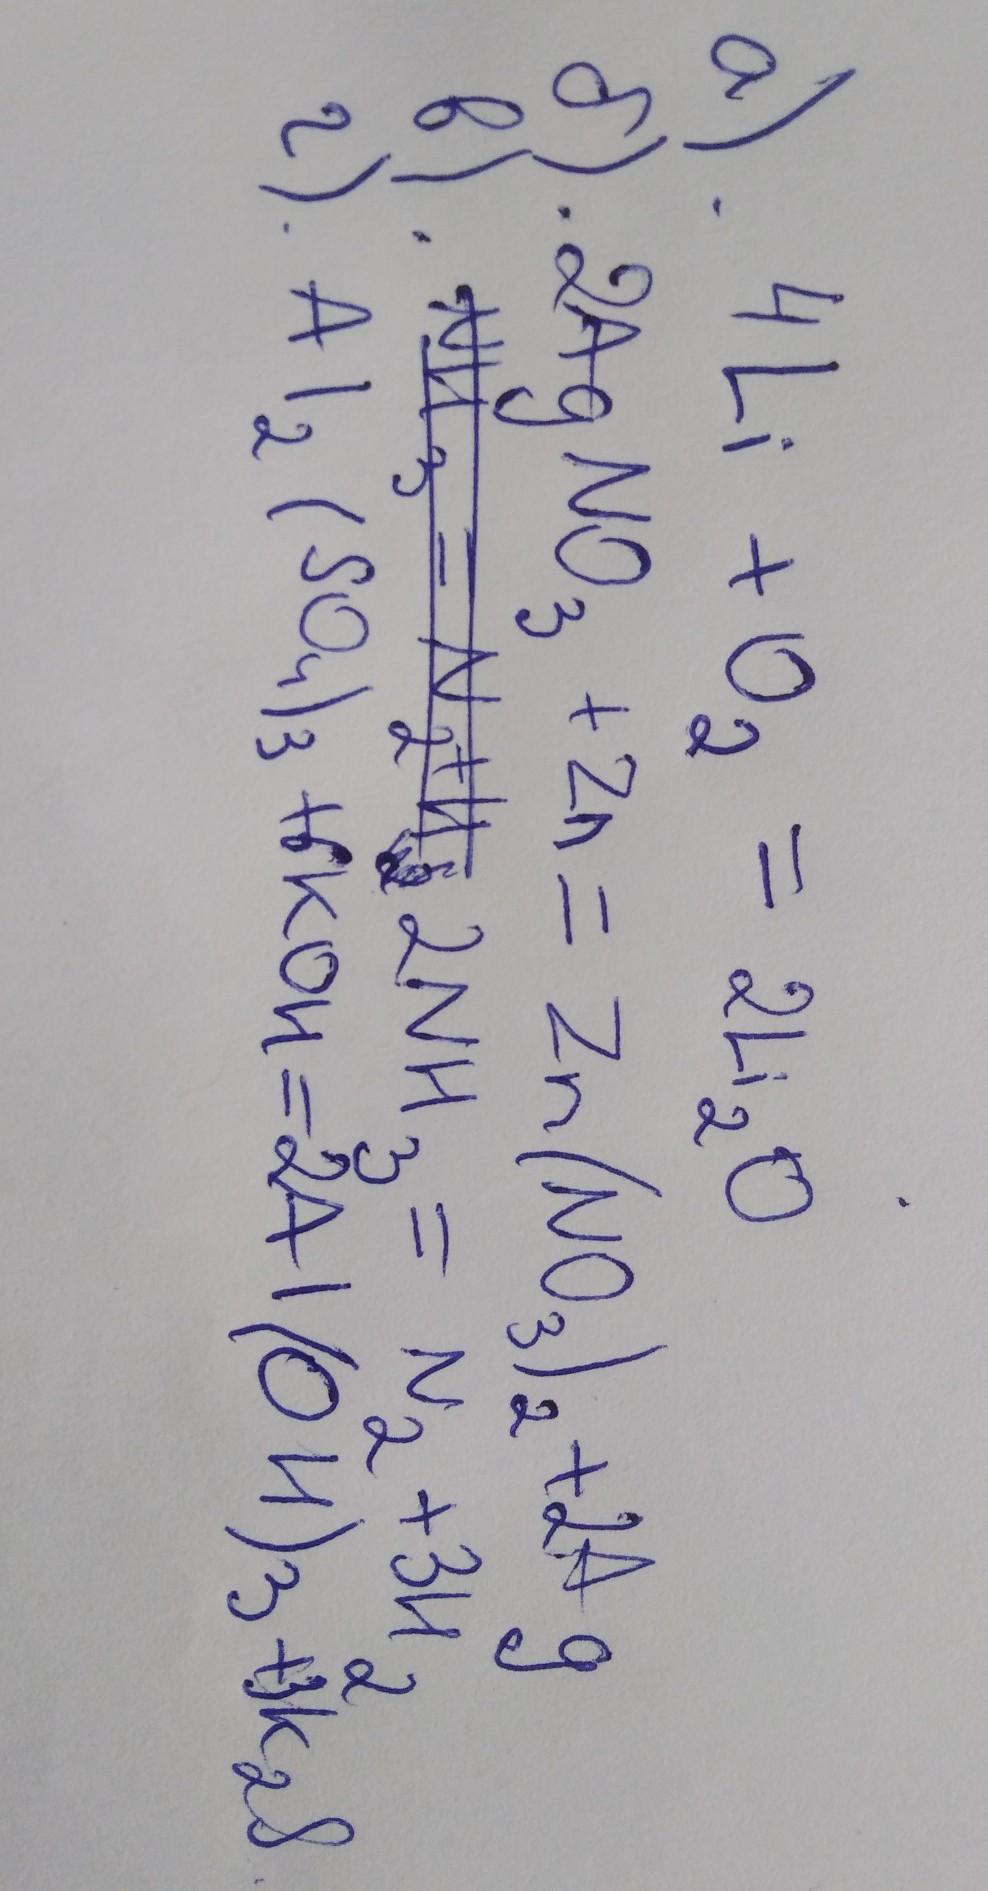 а). 4Li + O₂ = 2Li₂O
б). 2AgNO₃ + Zn = Zn(NO₃)₂ + 2Ag
в). NH₃ = N₂ + H₂ 2NH₃ = N₂ + 3H₂
г). Al₂(SO₄)₃ + 6KOH = 2Al(OH)₃ + 3K₂S